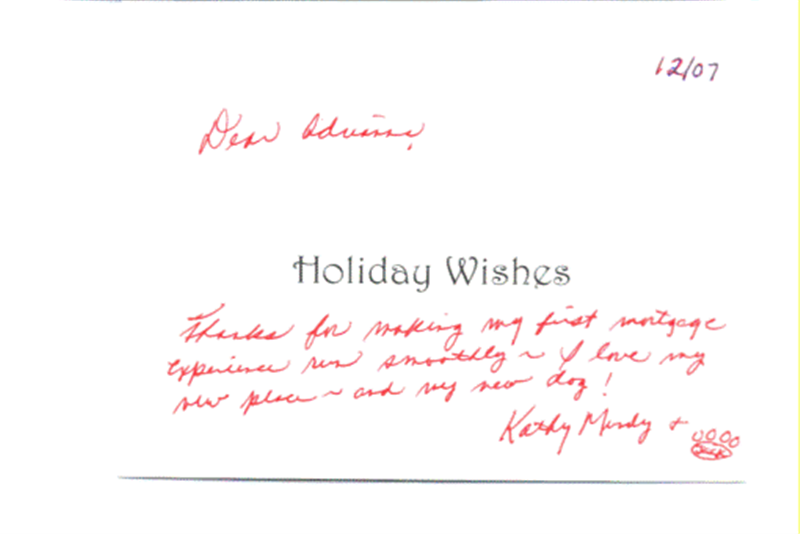 12/07
Dear Adriana,
Holiday Wishes
Thanks for making my first mortgage
experience run smoothly ~ I love my
new place ~ and my new dog!
Kathy Mundy +